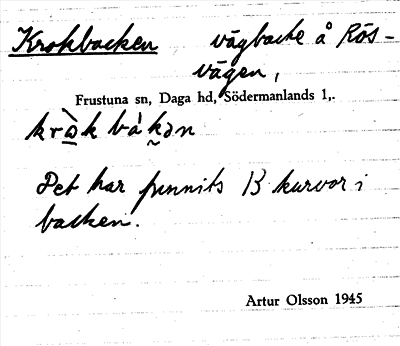 Krokbacken vägbacke å Rös-
vägen,
Frustuna sn, Daga hd, Södermanlands l,.
krò̲k bàkən
Det har funnits 13 kurvor i
backen.
Artur Olsson 1945